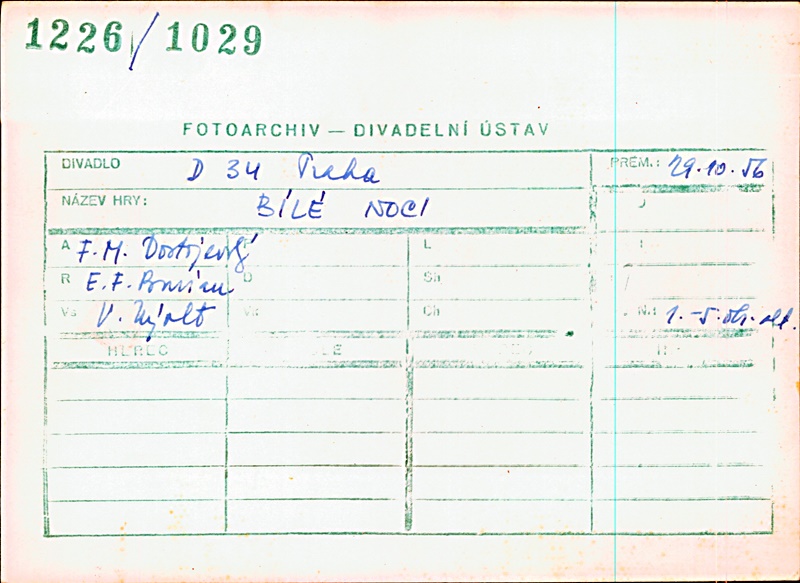 1226/1029
FOTOARCHIV — DIVADELNÍ ÚSTAV
DIVADLO D 34 Praha PREM.: 29.10.56
NÁZEV HRY: BÍLÉ NOCI J
A F. M. Dostojevský L
R E. F. Burian D Sh
Vs V. Nývlt Ch N.: 1.-5.
HEREC